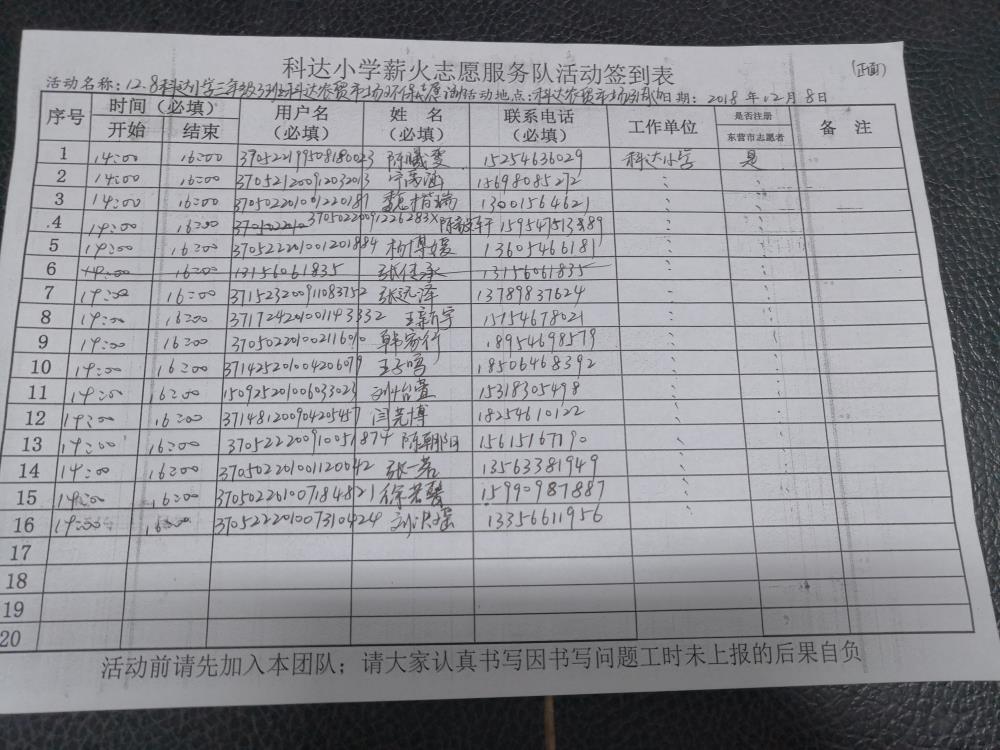 科达小学薪火志愿服务队活动签到表
(正面)
活动名称：12.8科达小学三年级3班 科达农贸市场环保志愿活动 活动地点：科达农贸市场 日期：2018年12月8日
序号 时间（必填） 用户名 姓 名 联系电话 工作单位 是否注册 备 注
开始 结束 （必填） （必填） （必填） 东营市志愿者
1 14:00 16:00 370522199508180023 陈曦雯 15254636029 科达小学 是
2 14:00 16:00 370521200912032013 15698085272 、 、
3 14:00 16:00 370502201001220187 魏楷瑞 13001564621 、 、
.4 14:00 16:00 37050220091226283X 、 、
5 14:00 16:00 370522201001201884 杨博媛 13605466181 、 、
6 14:00 16:00 13156061835 张传承 13156061835 、 、
7 14:00 16:00 371523200911083752 张远泽 13789837624 、 、
8 14:00 16:00 王新宇 15154678021 、 、
9 14:00 16:00 韩家行 18954698579 、 、
10 14:00 16:00 371425201004206079 王子鸣 18506468392 、 、
11 14:00 16:00 150925201006033023 刘怡萱 15318305498 、 、
12 14:00 16:00 闫芫博 18254610122 、 、
13 14:00 16:00 370522200910051874 陈朝阳 15615167190 、 、
14 14:00 16:00 370502201001120042 张一若 13563381949 、 、
15 14:00 16:00 370502201007184821 徐若馨 15990987887 、 、
16 14:00 16:00 370522201007310424 刘洪瑶 13356611956 、 、
17
18
19
20
活动前请先加入本团队；请大家认真书写因书写问题工时未上报的后果自负